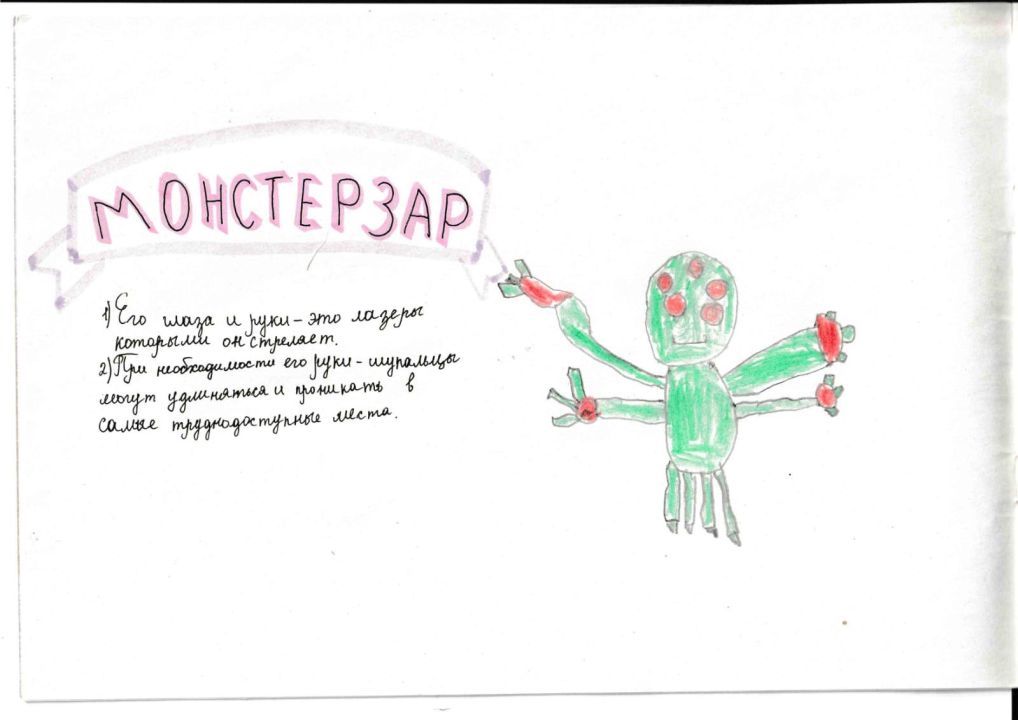 МОНСТЕРЗАР
1) Его глаза и руки - это лазеры
которыми он стреляет.
2) При необходимости его руки - щупальцы
могут удлиняться и проникать в
самые труднодоступные места.